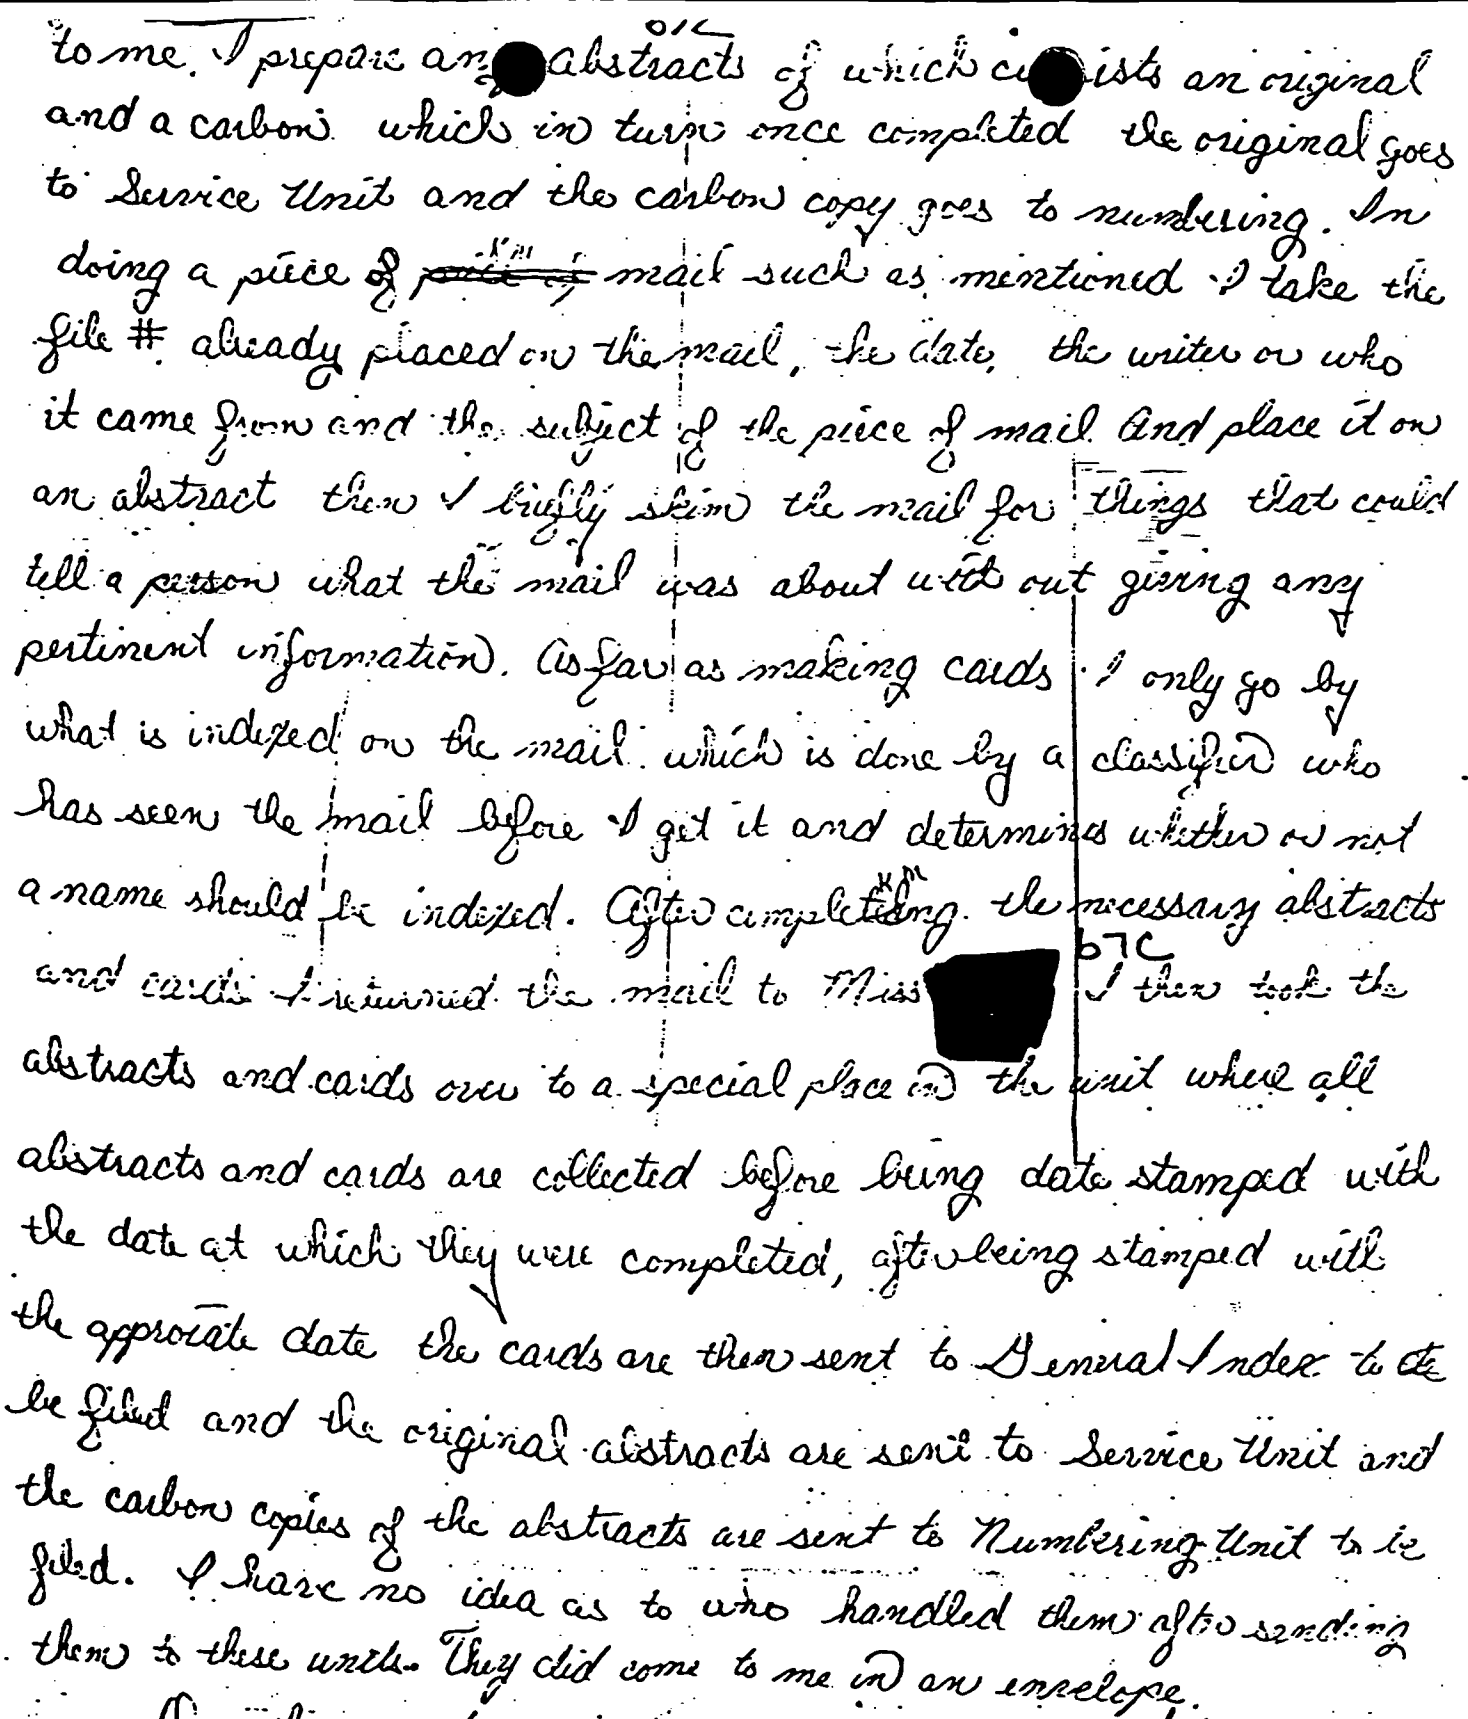 OK
to me. I prepare any abstracts of which c ists an original
and a carbon which in turn once completed the original goes
to Service Unit and the carbon copy goes to numbering. In
doing a piece of mail such as mentioned I take the
file # already placed on the mail, the date, the writer or who
it came from and the subject of the piece of mail And place it on
an abstract then I briefly skim the mail for things that could
tell a person what the mail was about with out giving any
pertinent information. As far as making cards I only go by
what is indexed on the mail which is done by a classifier who
has seen the mail before I get it and determines whether or not
a name should be indexed. After completing the necessary abstracts
b7C
and cards I returned the mail to Miss I then took the
abstracts and cards over to a special place in the unit where all
abstracts and cards are collected before being date stamped with
the date at which they were completed, after being stamped with
the approiate date the cards are then sent to General Index to
be filed and the original abstracts are sent to Service Unit and
the carbon copies of the abstracts are sent to Numbering Unit to be
filed. I have no idea as to who handled them after sending
them to these units. They did come to me in an envelope.